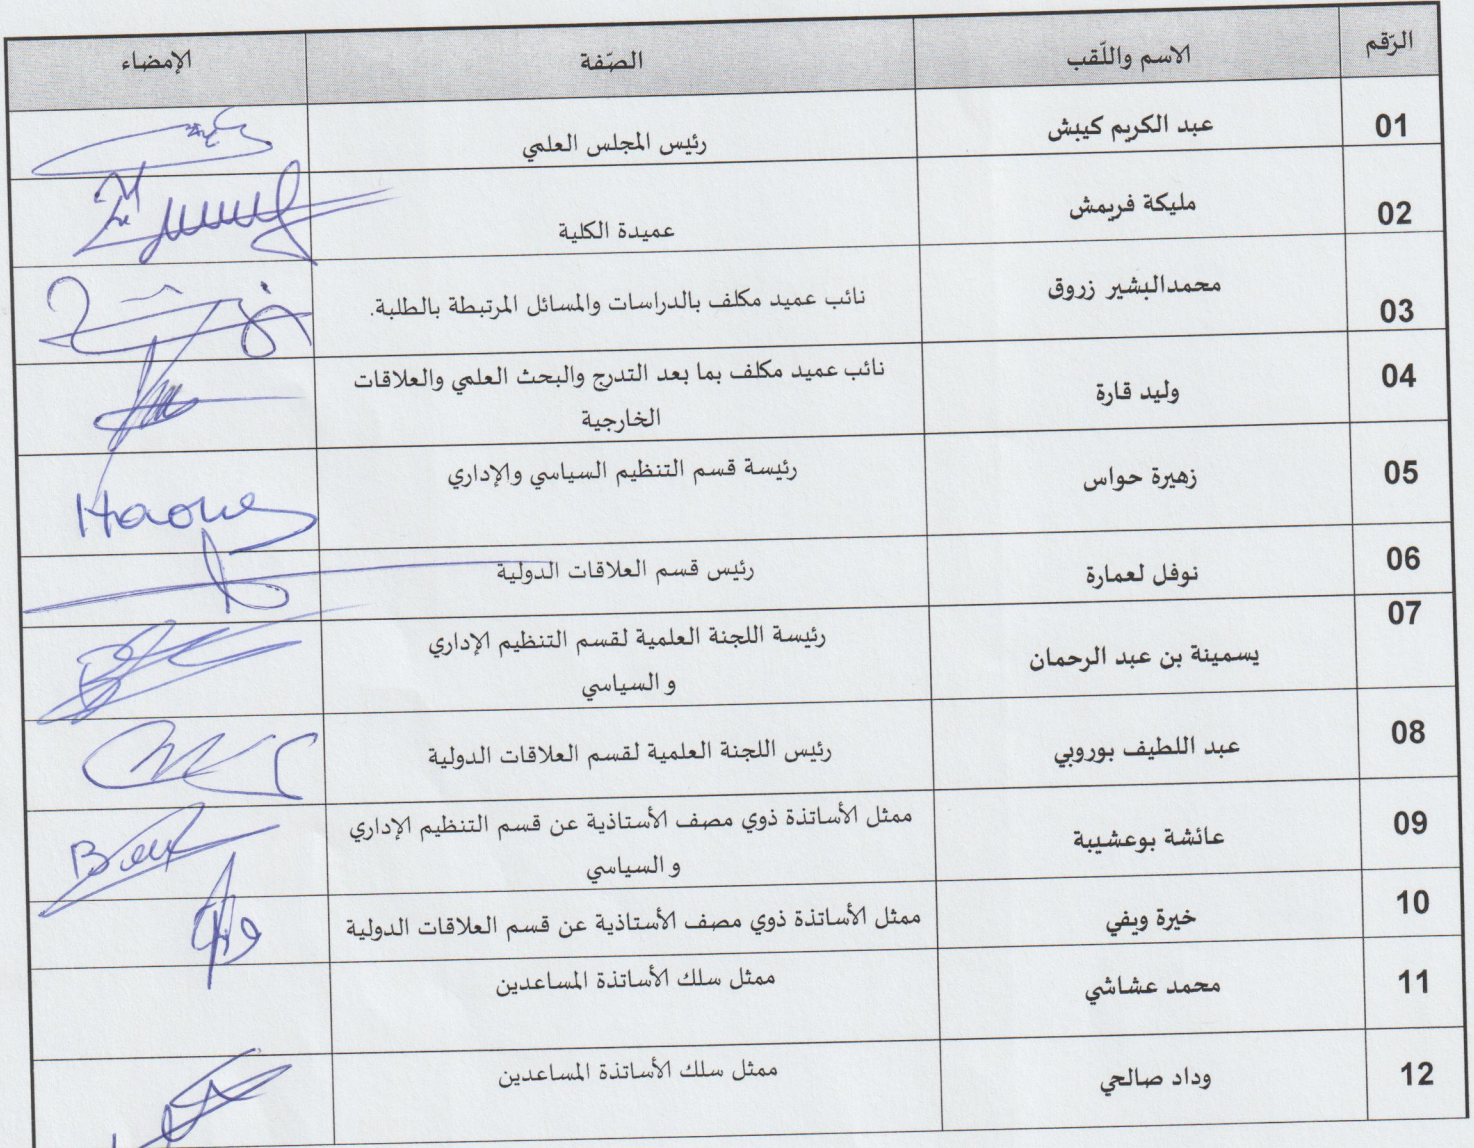 الرّقم الاسم واللّقب الصّفة الإمضاء
01 عبد الكريم كيبش رئيس المجلس العلمي
02 مليكة فريمش عميدة الكلية
03 محمدالبشير زروق نائب عميد مكلف بالدراسات والمسائل المرتبطة بالطلبة.
04 وليد قارة نائب عميد مكلف بما بعد التدرج والبحث العلمي والعلاقات
الخارجية
05 زهيرة حواس رئيسة قسم التنظيم السياسي والإداري
Haoues
06 نوفل لعمارة رئيس قسم العلاقات الدولية
07 يسمينة بن عبد الرحمان رئيسة اللجنة العلمية لقسم التنظيم الإداري
و السياسي
08 عبد اللطيف بوروبي رئيس اللجنة العلمية لقسم العلاقات الدولية
09 عائشة بوعشيبة ممثل الأساتذة ذوي مصف الأستاذية عن قسم التنظيم الإداري
و السياسي
10 خيرة ويفي ممثل الأساتذة ذوي مصف الأستاذية عن قسم العلاقات الدولية
11 محمد عشاشي ممثل سلك الأساتذة المساعدين
12 وداد صالحي ممثل سلك الأساتذة المساعدين